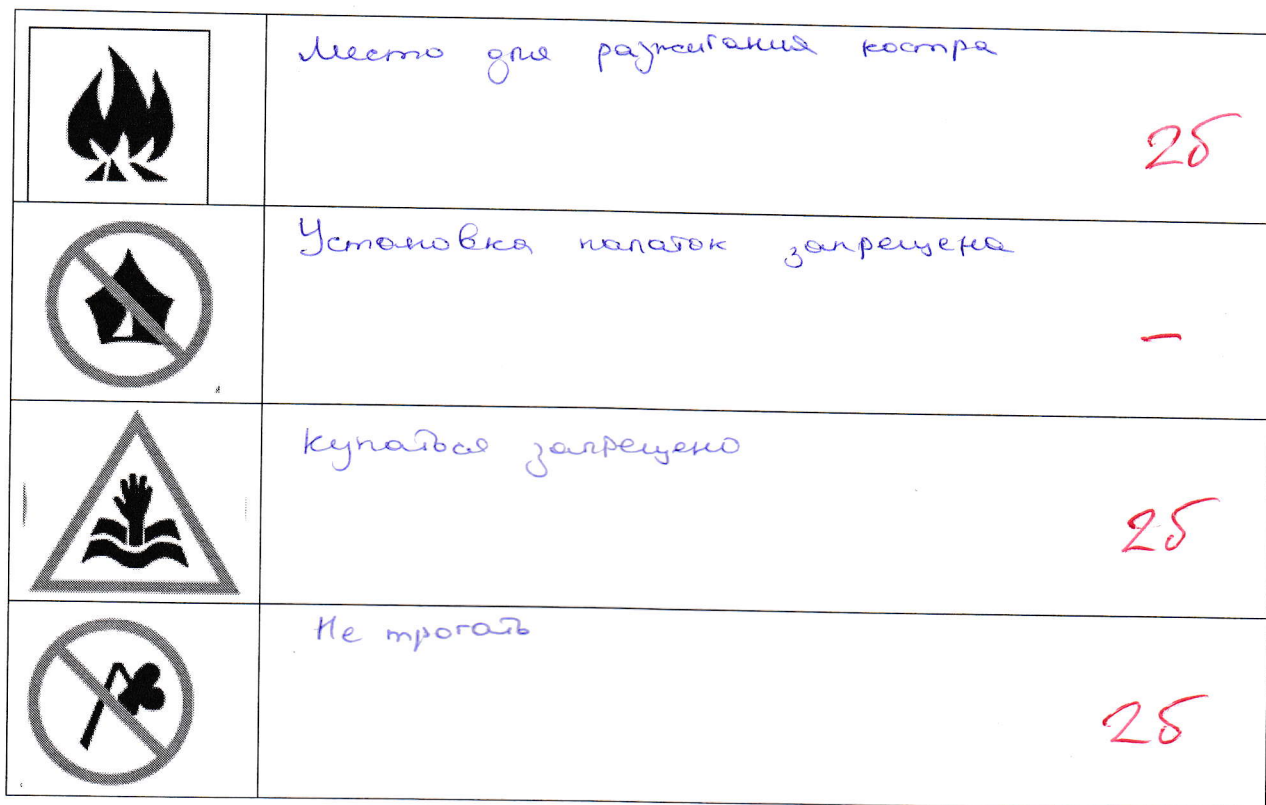 Место для разжигания костра
2б
Установка палаток запрещена
–
купаться запрещено
2б
Не трогать
2б